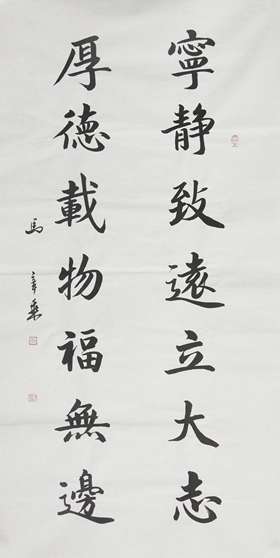 寧静致遠立大志
厚德載物福無邊
馬章乘